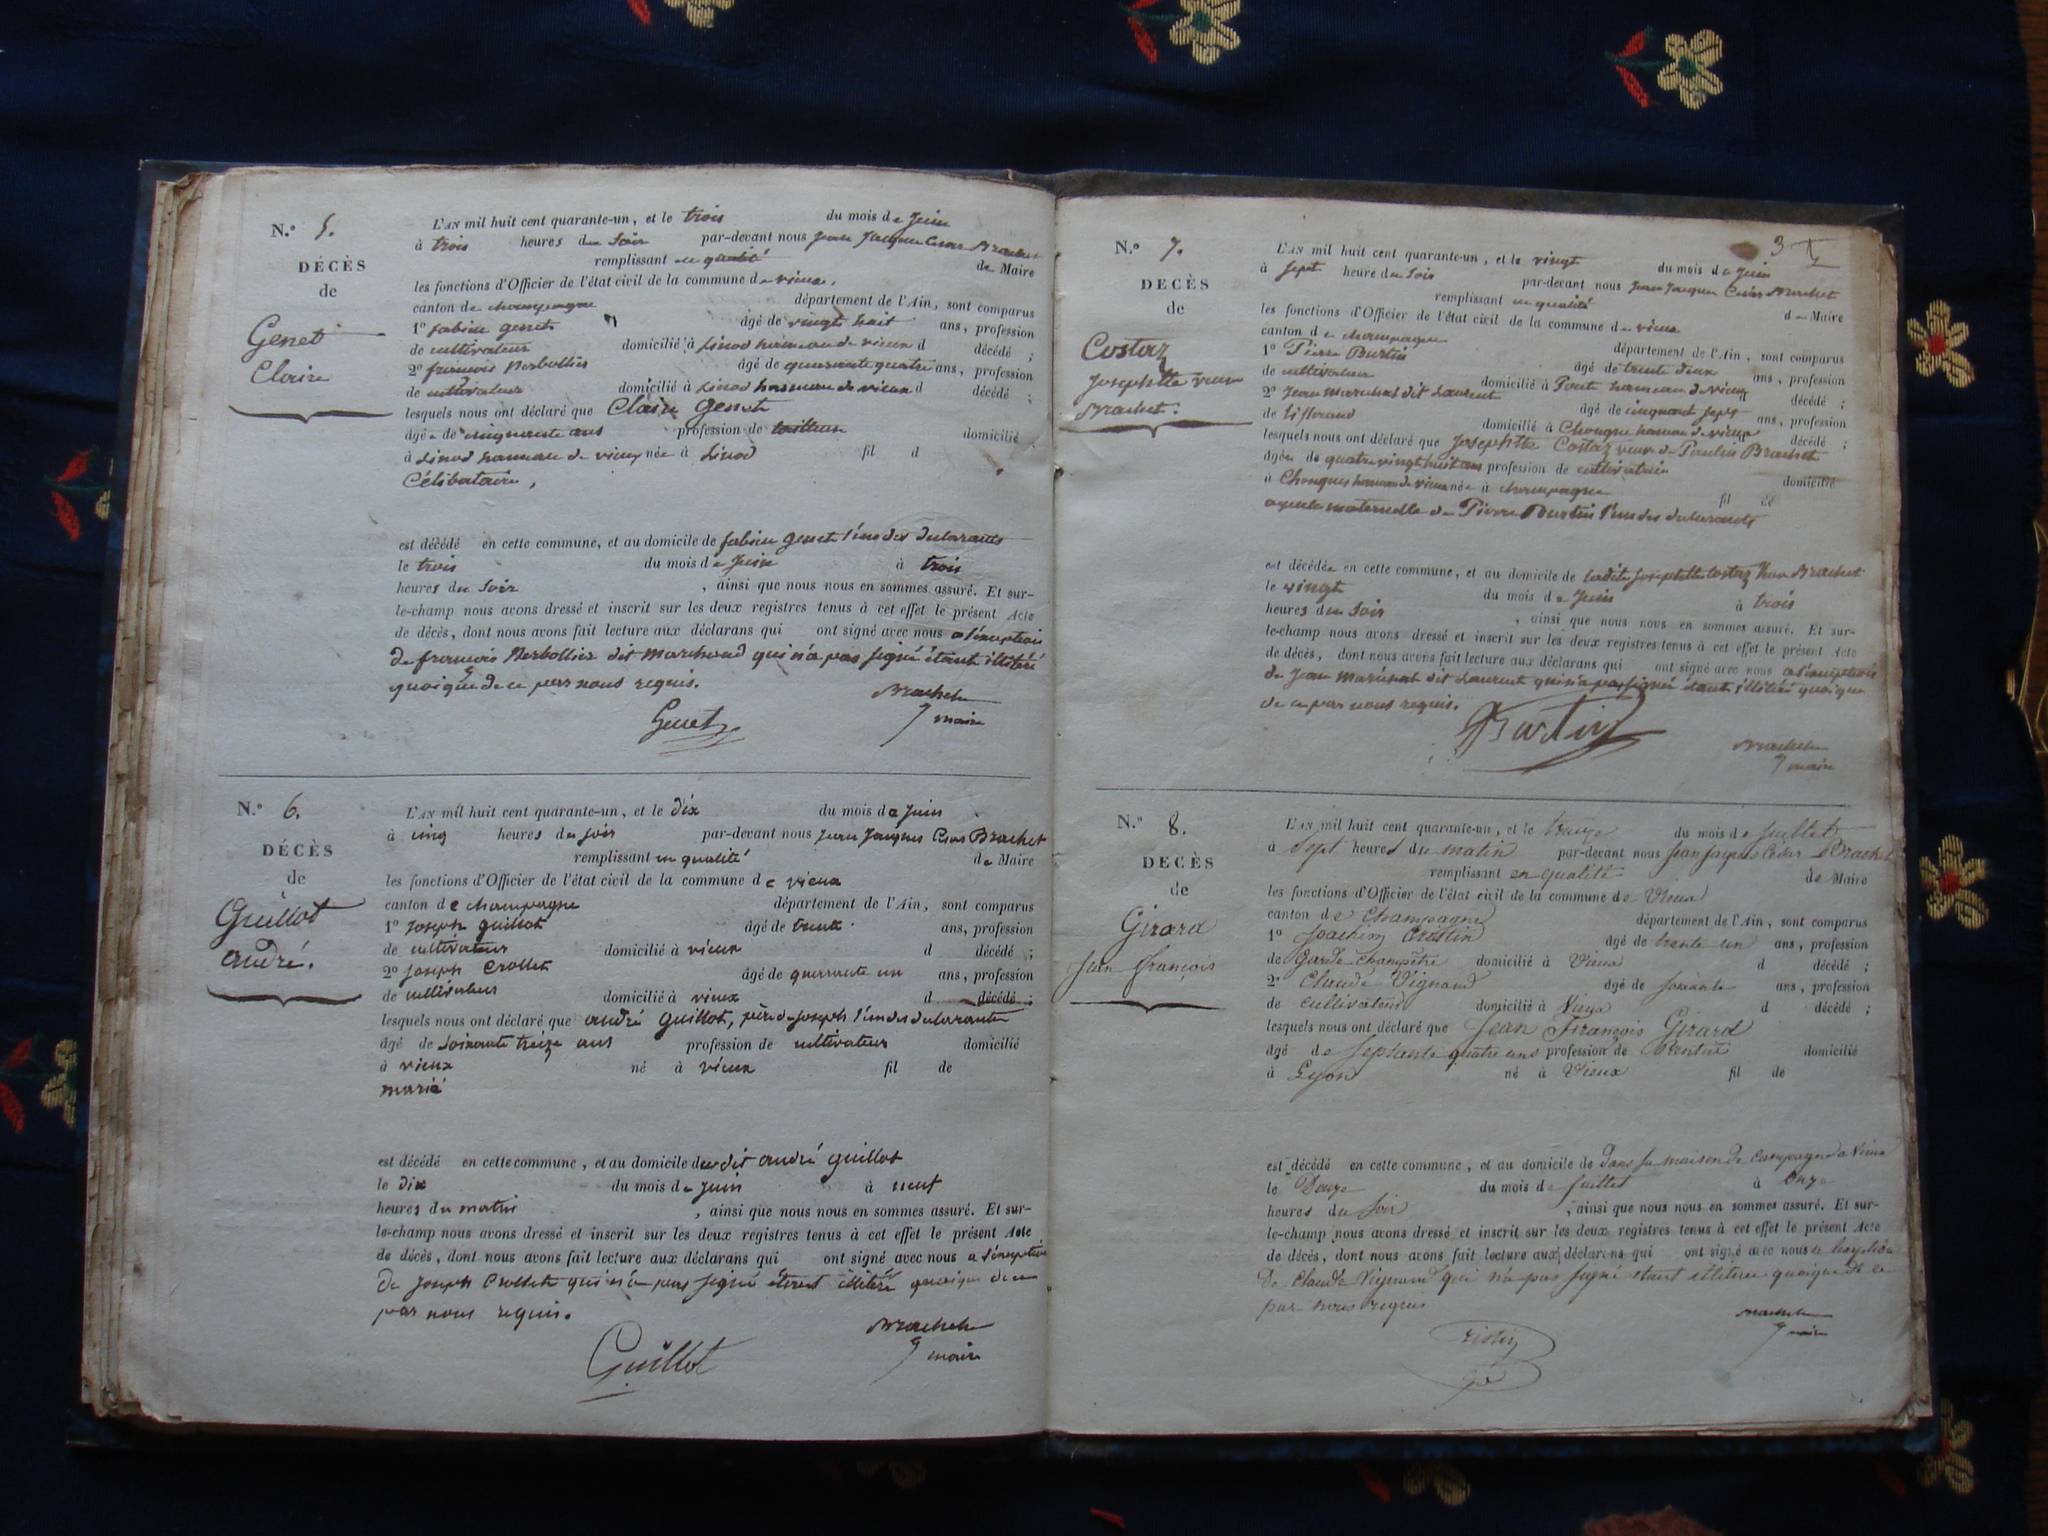 N.º 5.
DÉCÈS
de
Genet
Claire
L'AN mil huit cent quarante-un, et le trois du mois de Juin
à trois heures du soir par-devant nous Jean Jacques César Brachet
remplissant en qualité de Maire
les fonctions d'Officier de l'état civil de la commune de vieux,
canton de champagne département de l'Ain, sont comparus
1º fabien genet âgé de vingt huit ans, profession
de cultivateur domicilié à Linod hameau de vieux d décédé ;
2º françois Berbollier âgé de quarante quatre ans, profession
de cultivateur domicilié à Linod hameau de vieux d décédé ;
lesquels nous ont déclaré que Claire genet
âgée de cinquante ans profession de domicilié
à Linod hameau de vieux née à Linod fil d
Célibataire,
est décédé en cette commune, et au domicile de fabien genet l'un des déclarants
le trois du mois de Juin à trois
heures du soir , ainsi que nous nous en sommes assuré. Et sur-
le-champ nous avons dressé et inscrit sur les deux registres tenus à cet effet le présent Acte
de décès, dont nous avons fait lecture aux déclarans qui ont signé avec nous a l'éxception
de françois Berbollier dit marchand qui n'a pas signé étant illitéré
quoique de ce par nous requis.
Brachet
maire
Genet
N.º 6.
DÉCÈS
de
Guillot
andré.
L'AN mil huit cent quarante-un, et le dix du mois de Juin
à cinq heures du soir par-devant nous Jean Jacques César Brachet
remplissant en qualité de Maire
les fonctions d'Officier de l'état civil de la commune de vieux
canton de champagne département de l'Ain, sont comparus
1º Joseph guillot âgé de trente ans, profession
de cultivateur domicilié à vieux d décédé ;
2º Joseph Crollet âgé de quarante un ans, profession
de cultivateur domicilié à vieux d décédé ;
lesquels nous ont déclaré que andré guillot, père de Joseph l'un des déclarants
âgé de soixante treize ans profession de cultivateur domicilié
à vieux né à vieux fil de
marié
est décédé en cette commune, et au domicile du dit andré guillot
le dix du mois de Juin à neuf
heures du matin , ainsi que nous nous en sommes assuré. Et sur-
le-champ nous avons dressé et inscrit sur les deux registres tenus à cet effet le présent Acte
de décès, dont nous avons fait lecture aux déclarans qui ont signé avec nous a l'éxception
de Joseph Crollet qui n'a pas signé étant illitéré quoique de ce
par nous requis.
Brachet
maire
Guillot
3
N.º 7.
DÉCÈS
de
Costaz
Josephtte veuve
Brachet.
L'AN mil huit cent quarante-un, et le vingt du mois de Juin
à sept heure du soir par-devant nous Jean Jacques César Brachet
remplissant en qualité de Maire
les fonctions d'Officier de l'état civil de la commune de vieux
canton de champagne département de l'Ain, sont comparus
1º Pierre Burtin âgé de trente deux ans, profession
de cultivateur domicilié à Poute hameau de vieux décédé ;
2º Jean Maréchal dit Laurent âgé de cinquant sept ans, profession
de tisserand domicilié à Chongne hameau de vieux décédé ;
lesquels nous ont déclaré que Josephtte Costaz veuve de Paulin Brachet
âgée de quatre vingt huit ans profession de cultivatrice domicilié
à Chongnes hameau de vieux née à champagne fil de
ayeule maternelle de Pierre Burtin l'un des déclarants
est décédée en cette commune, et au domicile de ladite Josephtte Costaz veuve Brachet
le vingt du mois de Juin à trois
heures du soir , ainsi que nous nous en sommes assuré. Et sur-
le-champ nous avons dressé et inscrit sur les deux registres tenus à cet effet le présent Acte
de décès, dont nous avons fait lecture aux déclarans qui ont signé avec nous a l'éxception
de Jean maréchal dit Laurent qui n'a pas signé étant illitéré quoique
de ce par nous requis.
Burtin
Brachet
maire
N.º 8.
DÉCÈS
de
Girard
Jean françois
L'AN mil huit cent quarante-un, et le treize du mois de Juillet
à sept heures du matin par-devant nous Jean Jacques César Brachet
remplissant en qualité de Maire
les fonctions d'Officier de l'état civil de la commune de Vieux
canton de Champagne département de l'Ain, sont comparus
1º Joachim Cristin âgé de trente un ans, profession
de Garde champêtre domicilié à Vieux d décédé ;
2º Claude Vignand âgé de soixante ans, profession
de cultivateur domicilié à Vieux d décédé ;
lesquels nous ont déclaré que Jean François Girard
âgé de septante quatre ans profession de Rentier domicilié
à Lyon né à Vieux fil de
est décédé en cette commune, et au domicile de Dans sa maison de campagne a Vieux
le Douze du mois de Juillet à Onze
heures du soir , ainsi que nous nous en sommes assuré. Et sur-
le-champ nous avons dressé et inscrit sur les deux registres tenus à cet effet le présent Acte
de décès, dont nous avons fait lecture aux déclarans qui ont signé avec nous a l'exception
De Claude Vignand qui n'a pas signé etant illiteré quoique de ce
par nous requis
Brachet
maire